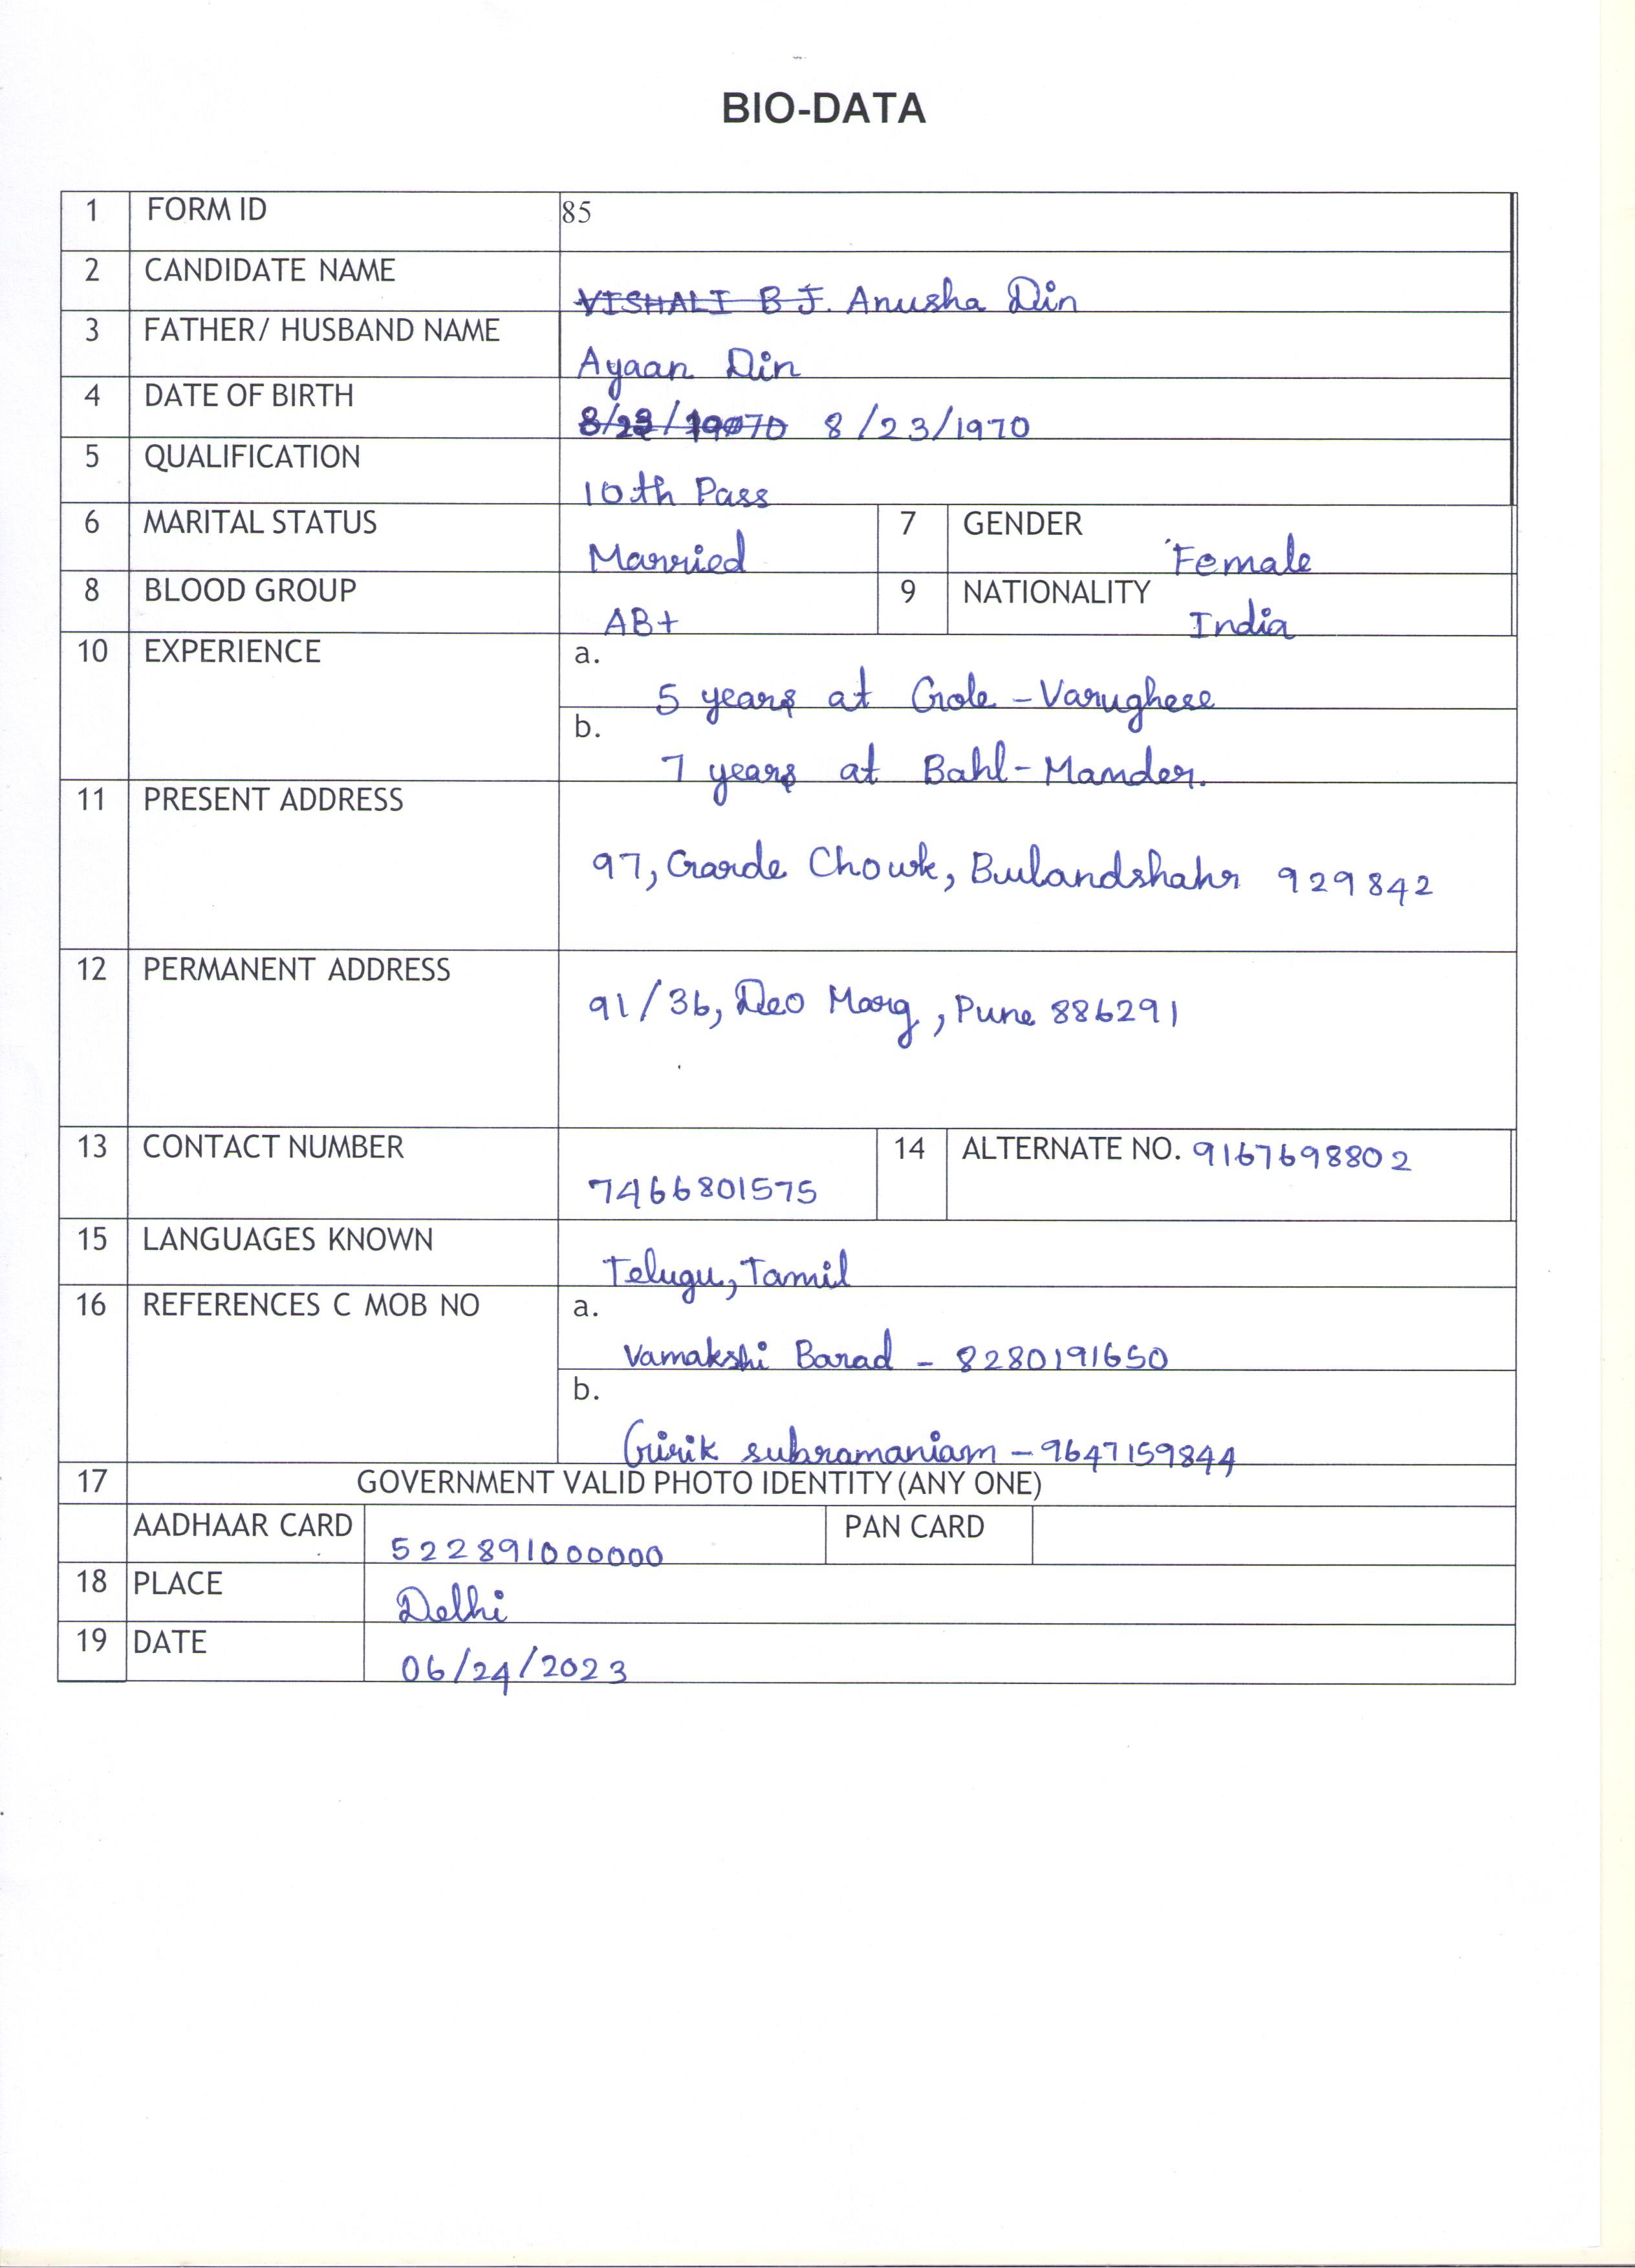 BIO-DATA
1 FORM ID 85
2 CANDIDATE NAME VISHALI B J. Anusha Din
3 FATHER/ HUSBAND NAME Ayaan Din
4 DATE OF BIRTH 8/23/1970
5 QUALIFICATION 10th Pass
6 MARITAL STATUS Married 7 GENDER Female
8 BLOOD GROUP AB+ 9 NATIONALITY India
10 EXPERIENCE a. 5 years at Gole-Varughese
b. 7 years at Bahl-Mander.
11 PRESENT ADDRESS
97, Garde Chowk, Bulandshahr 929842
12 PERMANENT ADDRESS
91/36, Deo Marg, Pune 886291
13 CONTACT NUMBER 7466801575 14 ALTERNATE NO. 9167698802
15 LANGUAGES KNOWN Telugu, Tamil
16 REFERENCES C MOB NO a. Vamakshi Barad - 8280191650
b. Girik subramaniam - 9647159844
17 GOVERNMENT VALID PHOTO IDENTITY (ANY ONE)
AADHAAR CARD 522891000000 PAN CARD
18 PLACE Delhi
19 DATE 06/24/2023